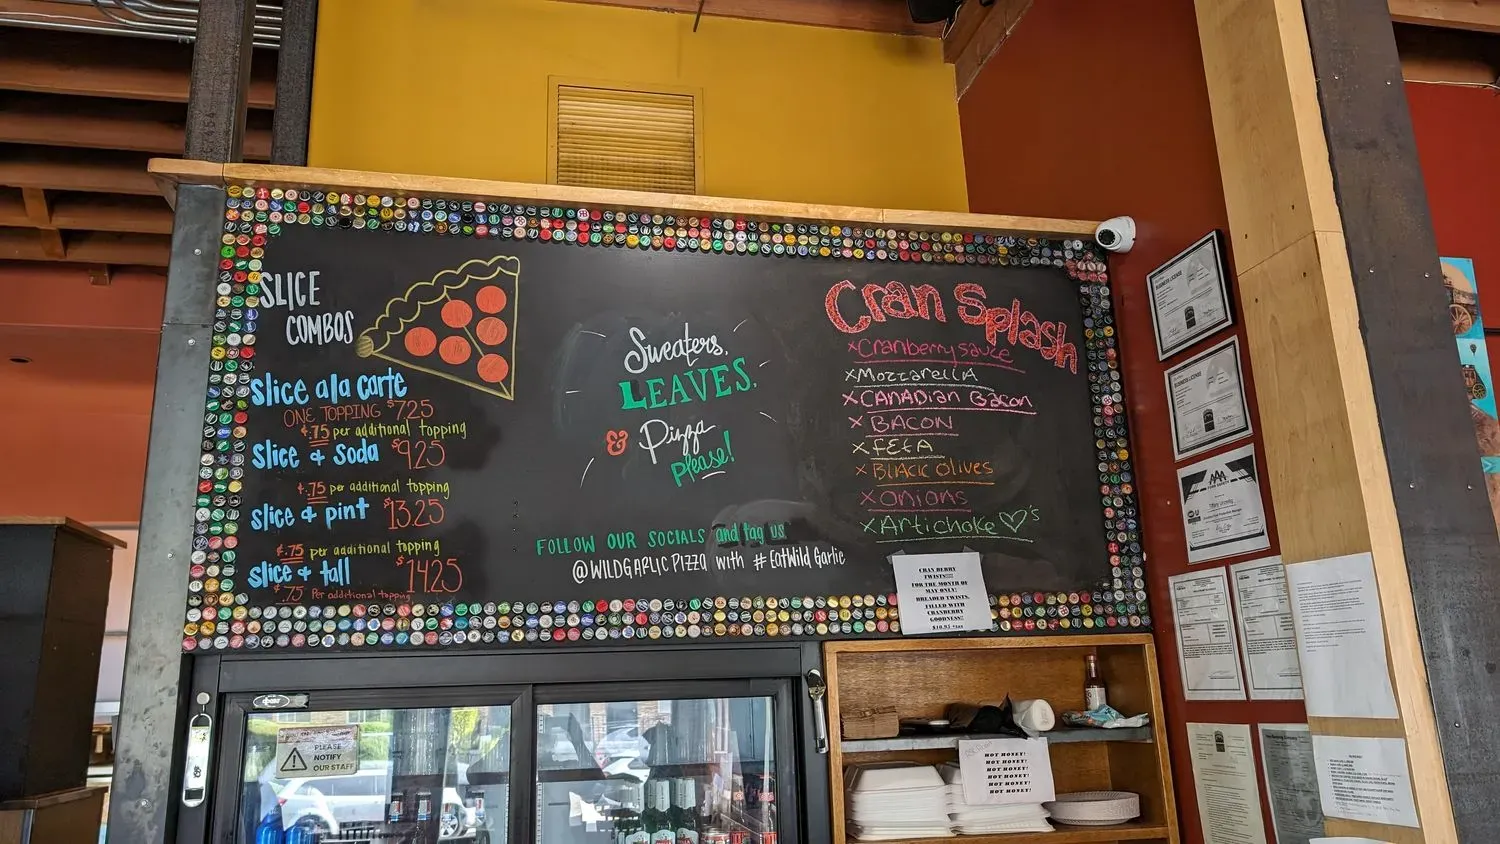 SLICE
COMBOS
Slice ala carte
ONE TOPPING $7.25
¢.75 per additional topping
Slice + Soda $9.25
¢.75 per additional topping
slice + pint $13.25
¢.75 per additional topping
slice + tall $14.25
¢.75 Per additional topping
Sweaters,
LEAVES,
& Pizza
please!
FOLLOW OUR SOCIALS and tag us
@WILDGARLICPIZZA with #EatWild Garlic
Cran Splash
×Cranberry sauce
×Mozzarella
×CANADian Bacon
×BACON
×FETA
×Black Olives
×Onions
×Artichoke♡'s
CRAN BERRY
TWISTS!!!
FOR THE MONTH OF
MAY ONLY!
BREADED TWISTS,
FILLED WITH
CRANBERRY
GOODNESS!!
$10.95
PLEASE
NOTIFY
OUR STAFF
HOT HONEY!
HOT HONEY!
HOT HONEY!
HOT HONEY!
HOT HONEY!
HOT HONEY!
BUSINESS LICENSE
BUSINESS LICENSE
AAA